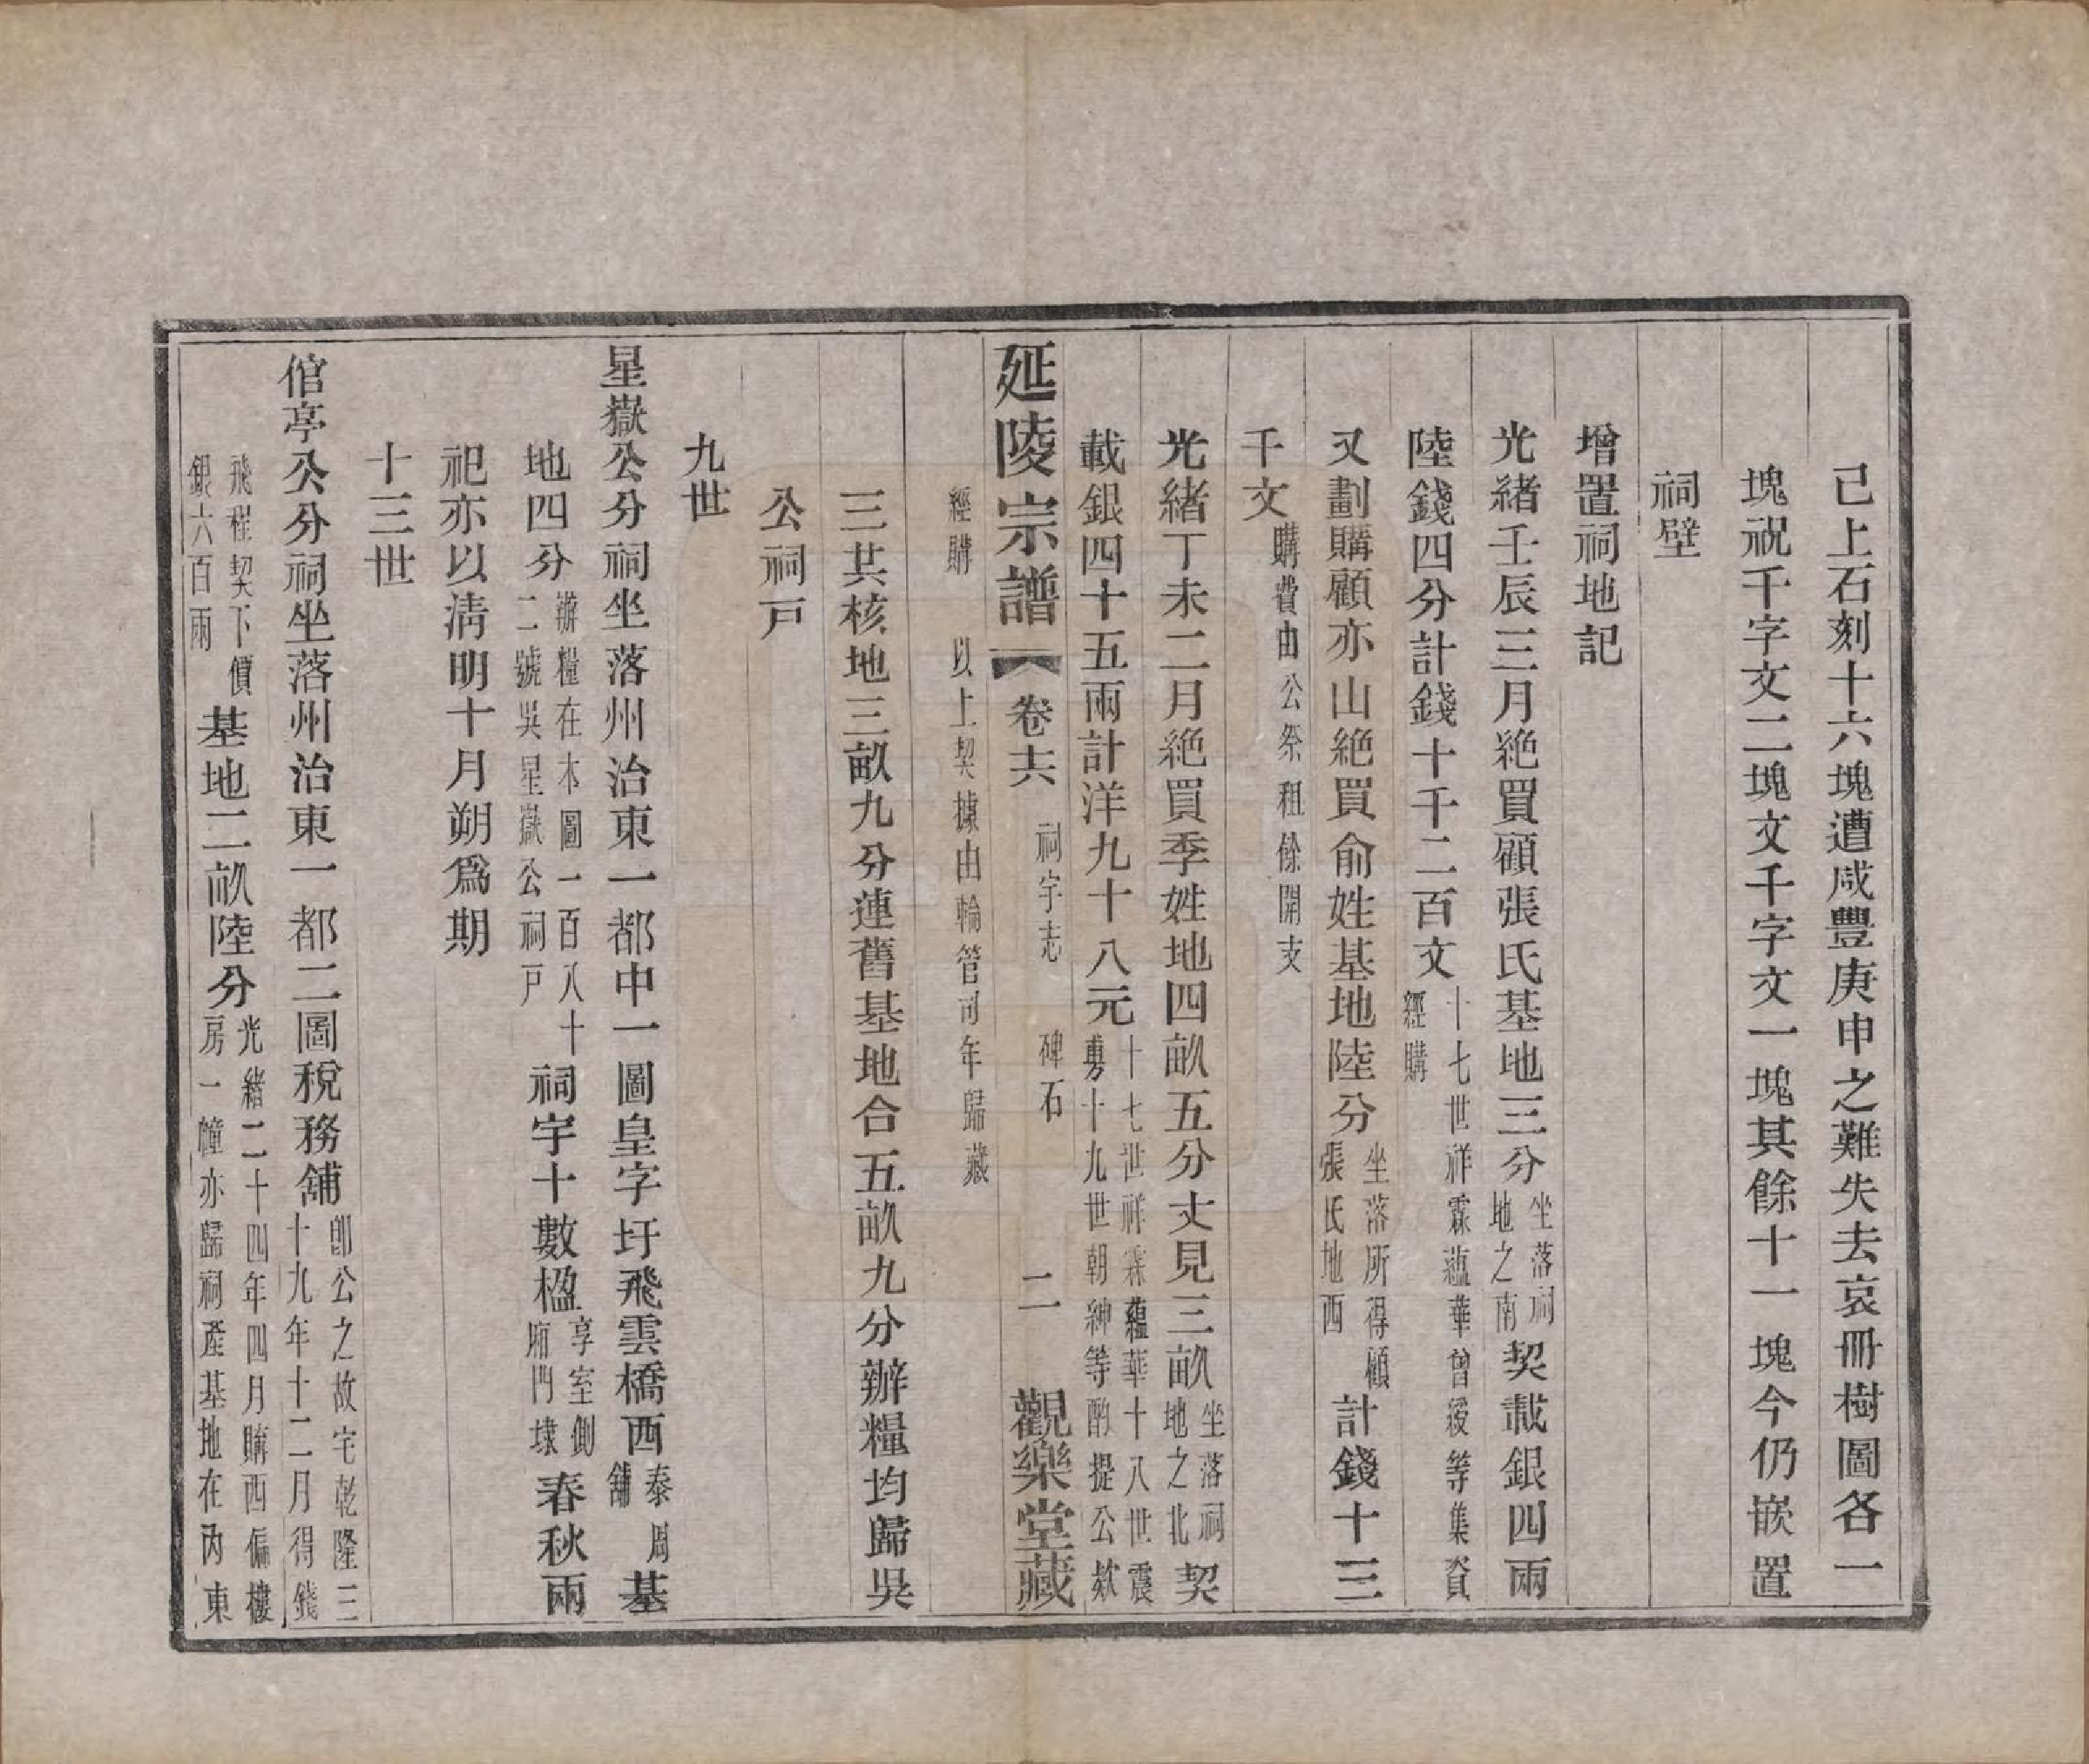 己上石刻十六塊遭咸豐庚申之難失去哀冊樹圖各一
塊祝千字文二塊文千字文一塊其餘十一塊今仍嵌置
祠壁
增置祠地記
光緒壬辰三月絶買顧張氏基地三分坐落祠地之南契載銀四兩
陸錢四分計錢十千二百文十七世祥霖蘊華曾綬等集資經購
又劃購顧亦山絶買俞姓基地陸分坐落所得顧張氏地西計錢十三
千文購費由公祭租餘開支
光緒丁未二月絶買季姓地四畝五分丈見三畝坐落祠地之北契
載銀四十五兩計洋九十八元十七世祥霖蘊華十八世震專十九世朝紳等酌提公欵
經購　以上契據由輪管司年歸藏
延陵宗譜　卷十六　祠宇志　碑石　二　觀樂堂藏
三共核地三畝九分連舊基地合五畝九分辦糧均歸吳
公祠戸
九世
星嶽公分祠坐落州治東一都中一圖皇字圩飛雲橋西泰周舖基
地四分辦糧在本圖一百八十二號吳星嶽公祠戸祠宇十數楹享室側廂門埭春秋兩
祀亦以淸明十月朔爲期
十三世
倌亭公分祠坐落州治東一都二圖稅務舖卽公之故宅乾隆三十九年十二月得錢
飛程契下價銀六百兩基地二畝陸分光緒二十四年四月購西偏樓房一幢亦歸祠產基地在內東